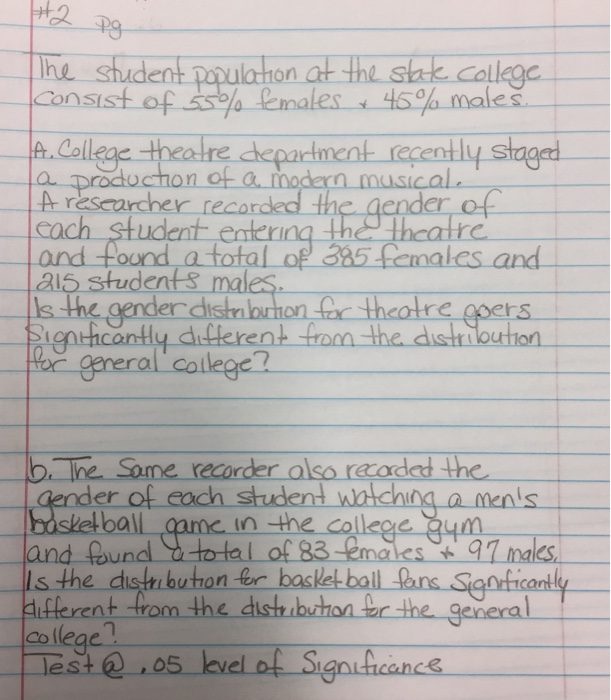 #2 pg
The student population at the state college
consist of 55% females + 45% males.
A. College theatre department recently staged
a production of a modern musical.
A researcher recorded the gender of
each student entering the theatre
and found a total of 385 females and
215 students males.
Is the gender distribution for theatre goers
Significantly different from the distribution
for general college?
b. The Same recorder also recorded the
gender of each student watching a men's
basketball game in the college gym
and found a total of 83 females + 97 males.
Is the distribution for basketball fans Significantly
different from the distribution for the general
college?
Test @ .05 level of Significance